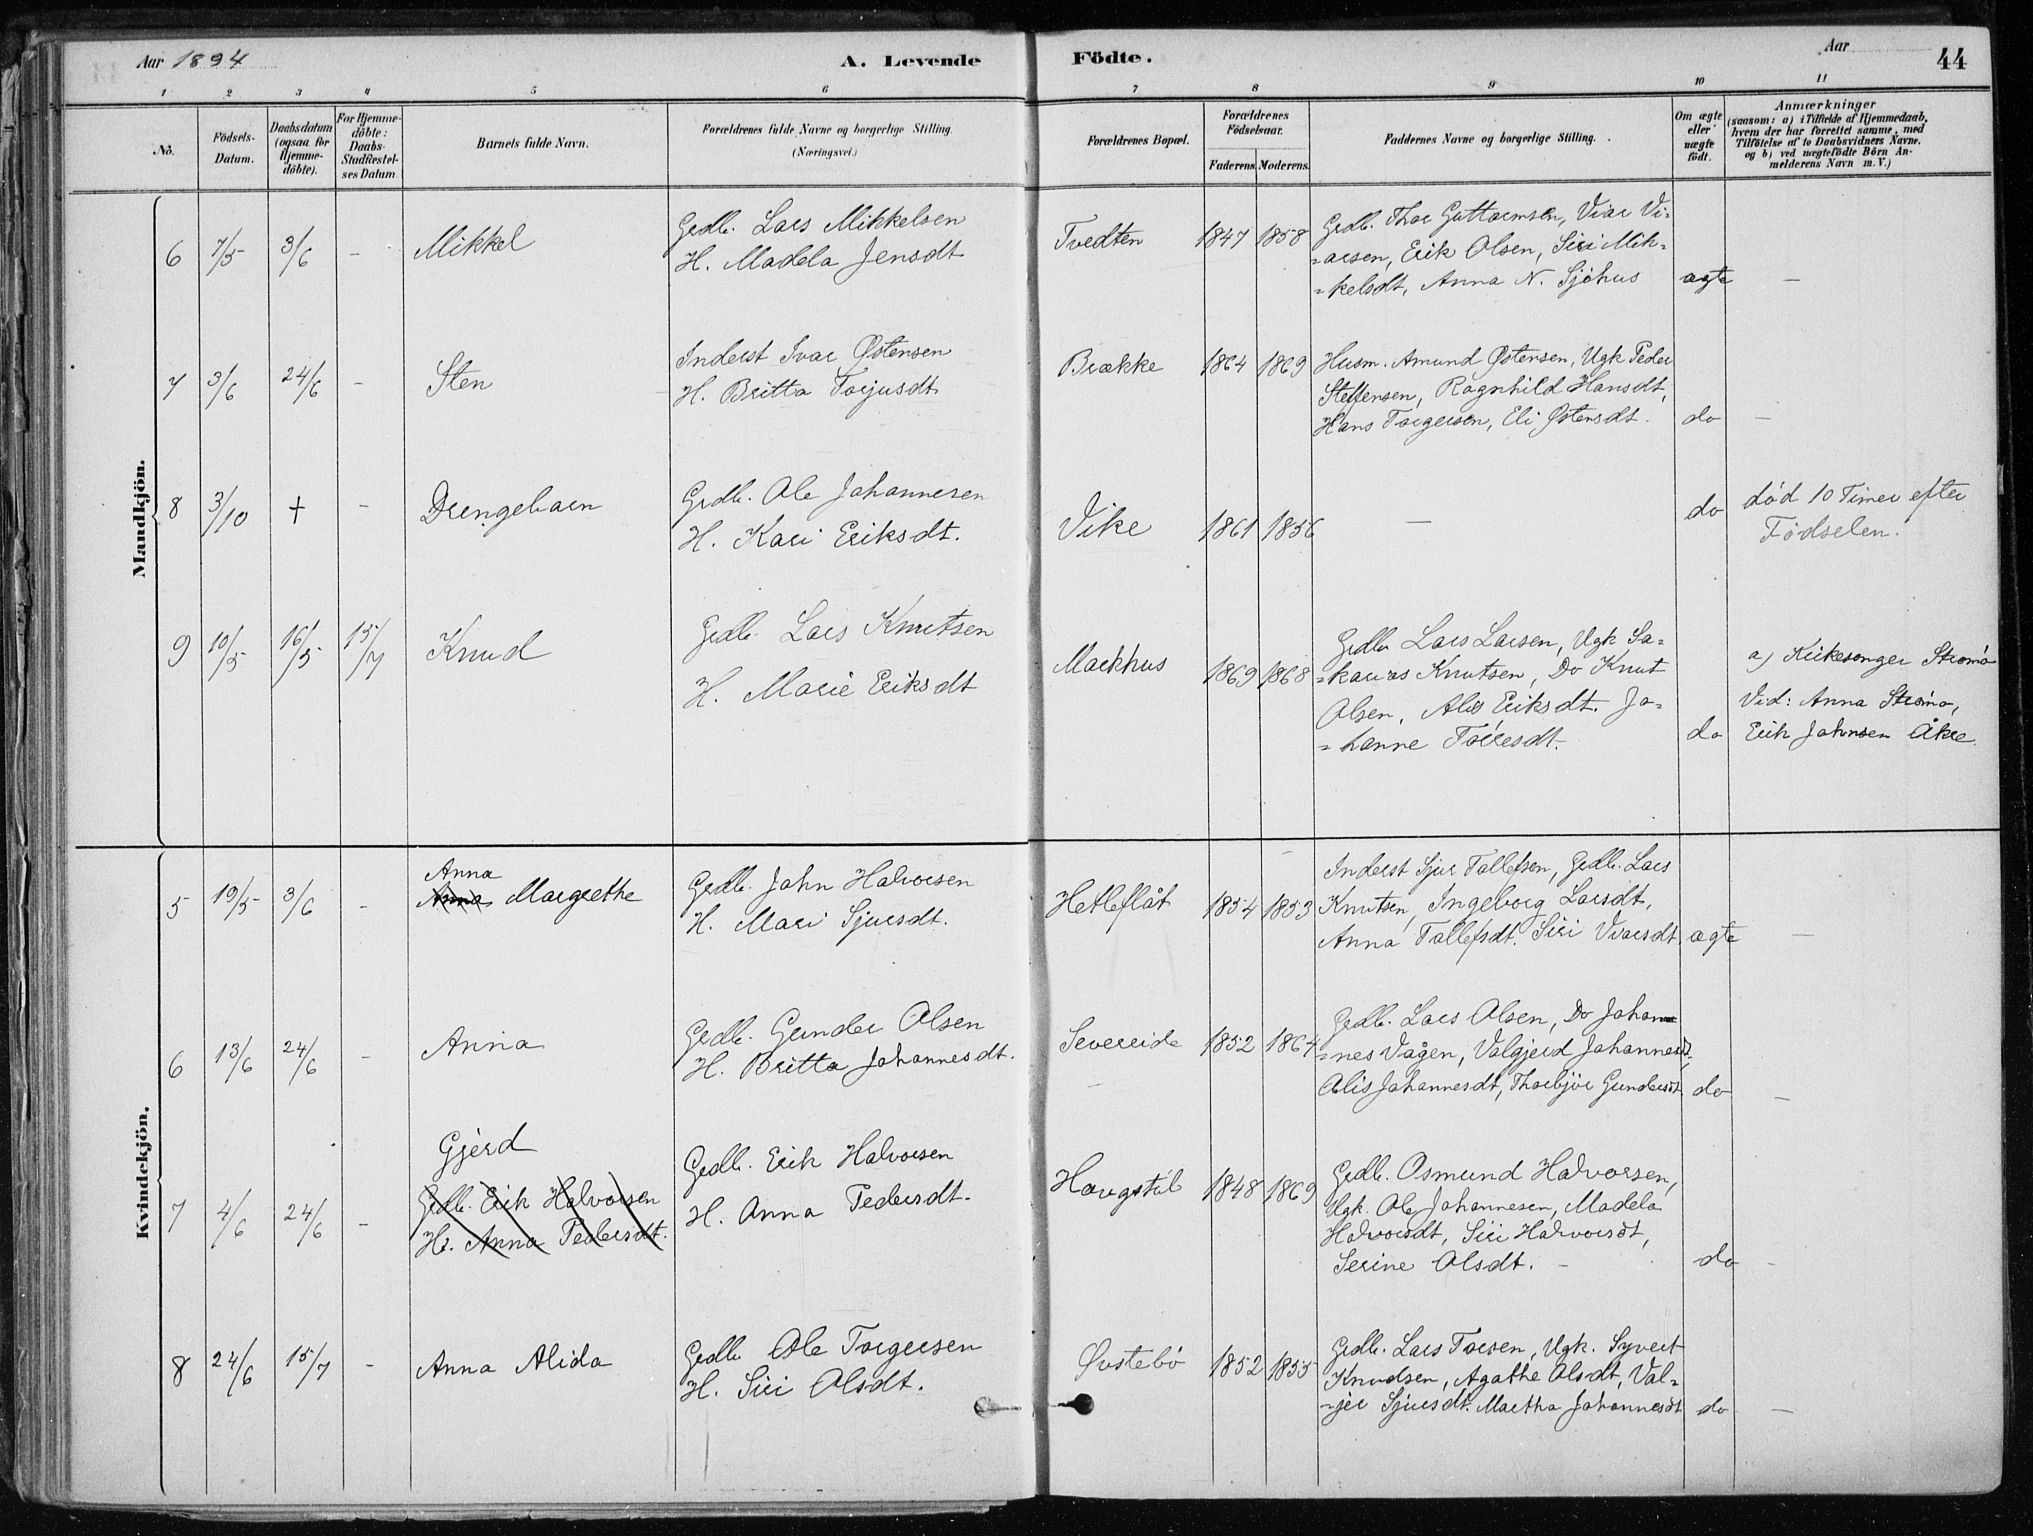 Aar 1894
A. Levende
Födte.
Aar
44
1 2 3 4 5 6 7 8 9 10 11
Nò.
Födsels-Datum.
Daabsdatum (ogsaa for Hjemmedöbte).
For Hjemmedöbte: Daabs-Stadfæstelses Datum
Barnets fulde Navn.
Forældrenes fulde Navne og borgerlige Stilling. (Næringsvei.)
Forældrenes Bopæl.
Forældrenes Födselsaar.
Faderens. Moderens.
Faddernes Navne og borgerlige Stilling.
Om ægte eller uægte födt.
Anmærkninger
(saasom: a) i Tilfælde af Hjemmedaab,
hvem der har forrettet samme, med
Tilföielse af to Daabsvidners Navne,
og b) ved uægtefödte Börn An-
melderens Navn m. V.)
Mandkjön.
6 7/5 3/6 - Mikkel
Grdb. Lars Mikkelsen
H. Madela Jensdt
Tvedten 1847 1858
Grdb. Thor Guttormsen, Viar Vi-
=arsen, Erik Olsen, Siri Mik=
=kelsdt, Anna N. Sjöhus
ægte -
7 3/6 24/6 - Sten
Inderst Ivar Østensen
H. Britta Torjusdt
Brække 1864 1869
Husm. Amund Østensen, Ugk Peder
Steffensen, Ragnhild Hansdt,
Hans Torgersen, Eli Østensdt.
do -
8 3/10 + - Drengebarn
Grdb. Ole Johannesen
H. Kari Eriksdt.
Vike 1861 1856
-
do
död 10 Timer efter
Födselen.
9 10/5 16/5 15/7 Knud
Grdb. Lars Knutsen
H. Marie Eriksdt
Markhus 1869 1868
Grdbr Lars Larsen, Ugk Sa-
=karias Knutsen, Do Knut
Olsen, Alis Eriksdt. Jo=
=hanne Töresdt.
do
a) Kirkesanger Strömö
Vid: Anna Strömö,
Erik Johnsen Åkre
Kvindekjön.
5 19/5 3/6 -
Anna
Anna Margrethe
Grdb. John Halvorsen
H. Mari Sjursdt.
Hetleflåt 1854 1853
Inderst Sjur Tollefsen, Grdb. Lars
Knutsen, Ingeborg Larsdt,
Anna Tollefsdt. Siri Viarsdt
ægte -
6 13/6 24/6 - Anna
Grdb. Gunder Olsen
H. Britta Johannesdt.
Severeide 1852 1864
Grdb. Lars Olsen, Do Johan
=nes Vågen, Valgjerd Johannesdt,
Alis Johannesdt, Thorbjör Gundersdt
do -
7 4/6 24/6 -
Gjerd
Grdb. Erik Halvorsen
H. Anna Pedersdt.
Grdb. Erik Halvorsen
H. Anna Pedersdt.
Haugstöl 1848 1869
Grdb. Osmund Halvorsen,
Ugk. Ole Johannesen, Madela
Halvorsdt, Siri Halvorsdt,
Serine Olsdt. -
do -
8 24/6 15/7 - Anna Alida
Grdb Ole Torgersen
H. Siri Olsdt.
Øvstebö 1852 1855
Grdb. Lars Toresen, Ugk. Syvert
Knudsen, Agathe Olsdt, Val=
=jer Sjursdt. Martha Johannesdt
do -